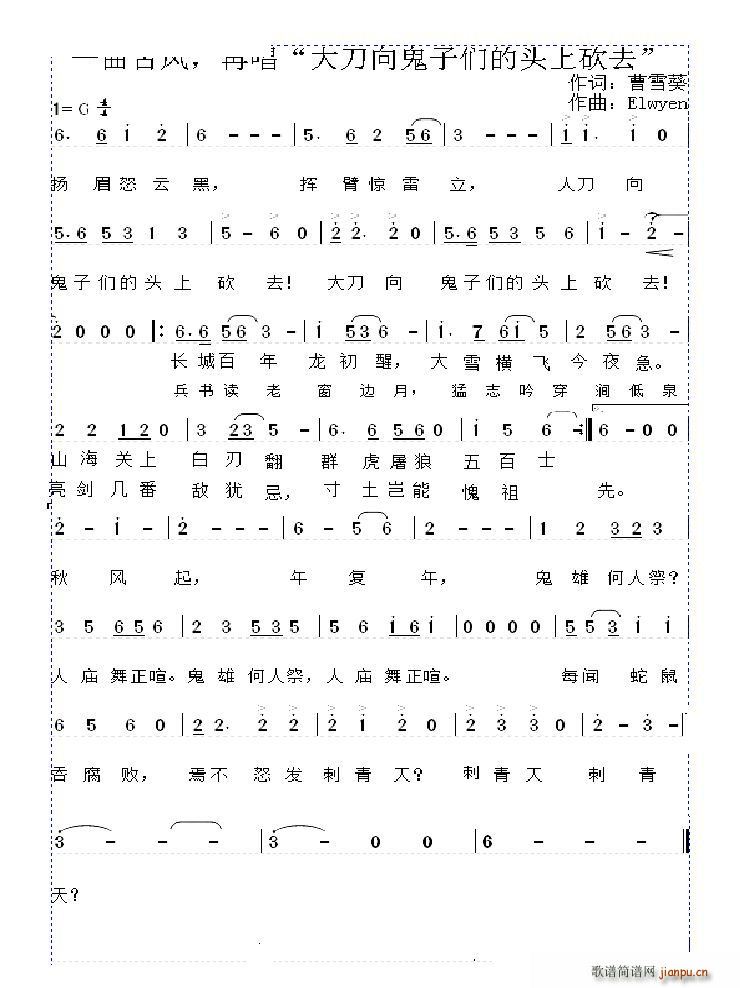 一曲古风，再唱“大刀向鬼子们的头上砍去”
作词：曹雪葵
作曲：Elwyen
1= G 4/4
6. 6 1 2 | 6 - - - | 5. 6 2 56 | 3 - - - | 1 1. 1 0
扬眉怒云黑，挥臂惊雷立，大刀向
5.6 53 1 3 | 5 - 6 0 | 2 2. 2 0 | 5.6 53 5 6 | 1 - 2 -
鬼子们的头上砍去！大刀向鬼子们的头上砍去！
2 0 0 0 |: 6.6 56 3 - | 1 536 - | 1. 7 61 5 | 2 563 -
长城百年龙初醒，大雪横飞今夜急。
兵书读老窗边月，猛志吟穿涧低泉
2 2 120 | 3 23 5 - | 6. 6560 | 1 5 6 - :| 2. 6 - 0 0
山海关上白刃翻群虎屠狼五百士
亮剑几番敌犹忌，寸土岂能愧祖先。
2 - 1 - | 2 - - - | 6 - 56 | 2 - - - | 1 2 323
秋风起，年复年，鬼雄何人祭？
3 5 656 | 2 3 535 | 5 6 161 | 0 0 0 0 | 55 3 1
人庙舞正喧。鬼雄何人祭，人庙舞正喧。每闻蛇鼠
6 5 6 0 | 22. 2 2 | 2 1 2 0 | 2 3 3 0 | 2 - 3 -
吞腐败，焉不怒发刺青天？刺青天刺青
3 - - - | 3 - 0 0 | 6 - - -
天？
歌谱简谱网 jianpu.cn